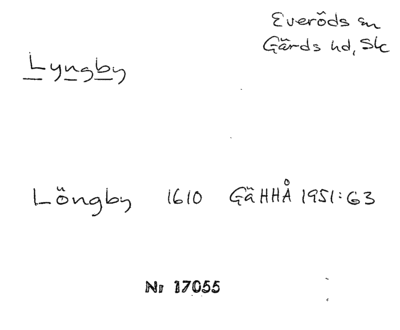 Everöds sn
Gärds hd, Sk
Lyngby
Löngby 1610 GäHHÅ 1951:63
Nr 17055